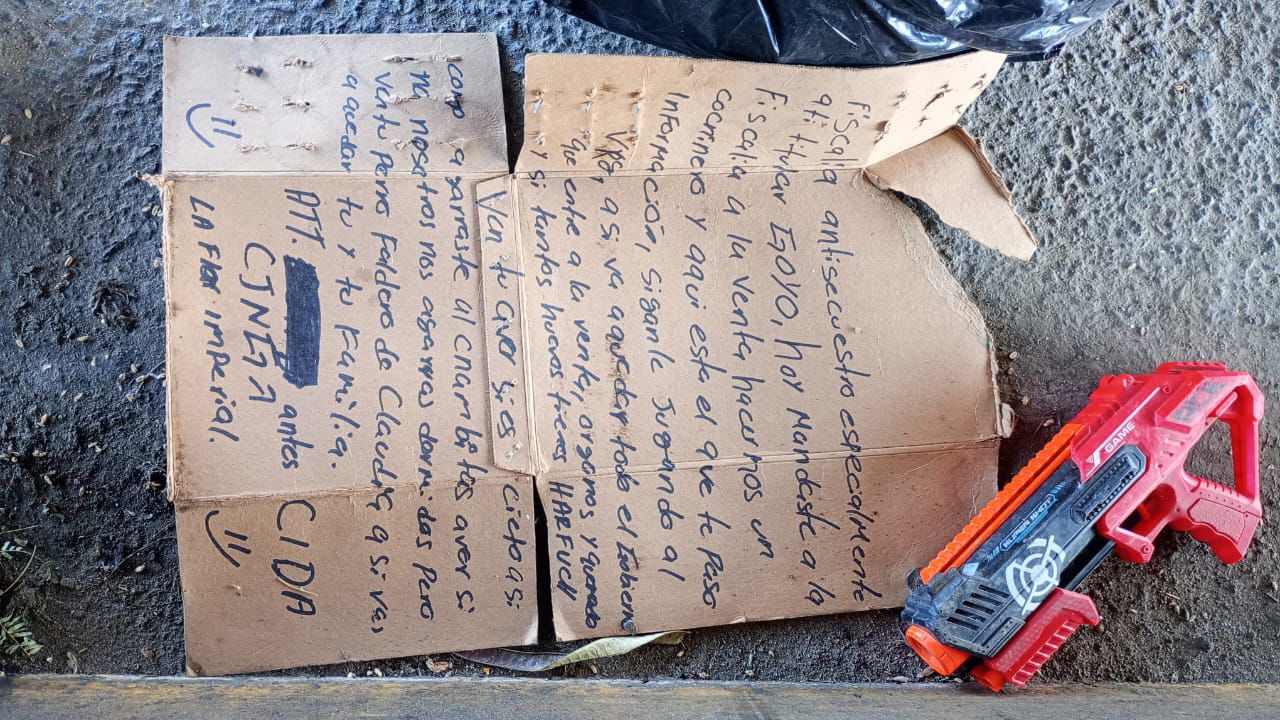 fiscalia antisecuestro especialmente
ati titular Igoyo, hoy Mandaste a la
fiscalia a la venta hacernos un
y aqui esta el que te Paso
Información, siganle Jugando al
a si va aquedar todo el
ente a la ventar organos, y
y si tantos huevos tienes HARFUCH
Van tu aver si es cieto a si
como agarraste al chambitas aver si
no nosotros nos agarras dormidos Pero
Ven tu Perro Faldero de Claudia a si vas
a quedar tu y tu Familia.
ATT. antes CIDA
LA Flor imperial.
GAME
SUPER SHOT